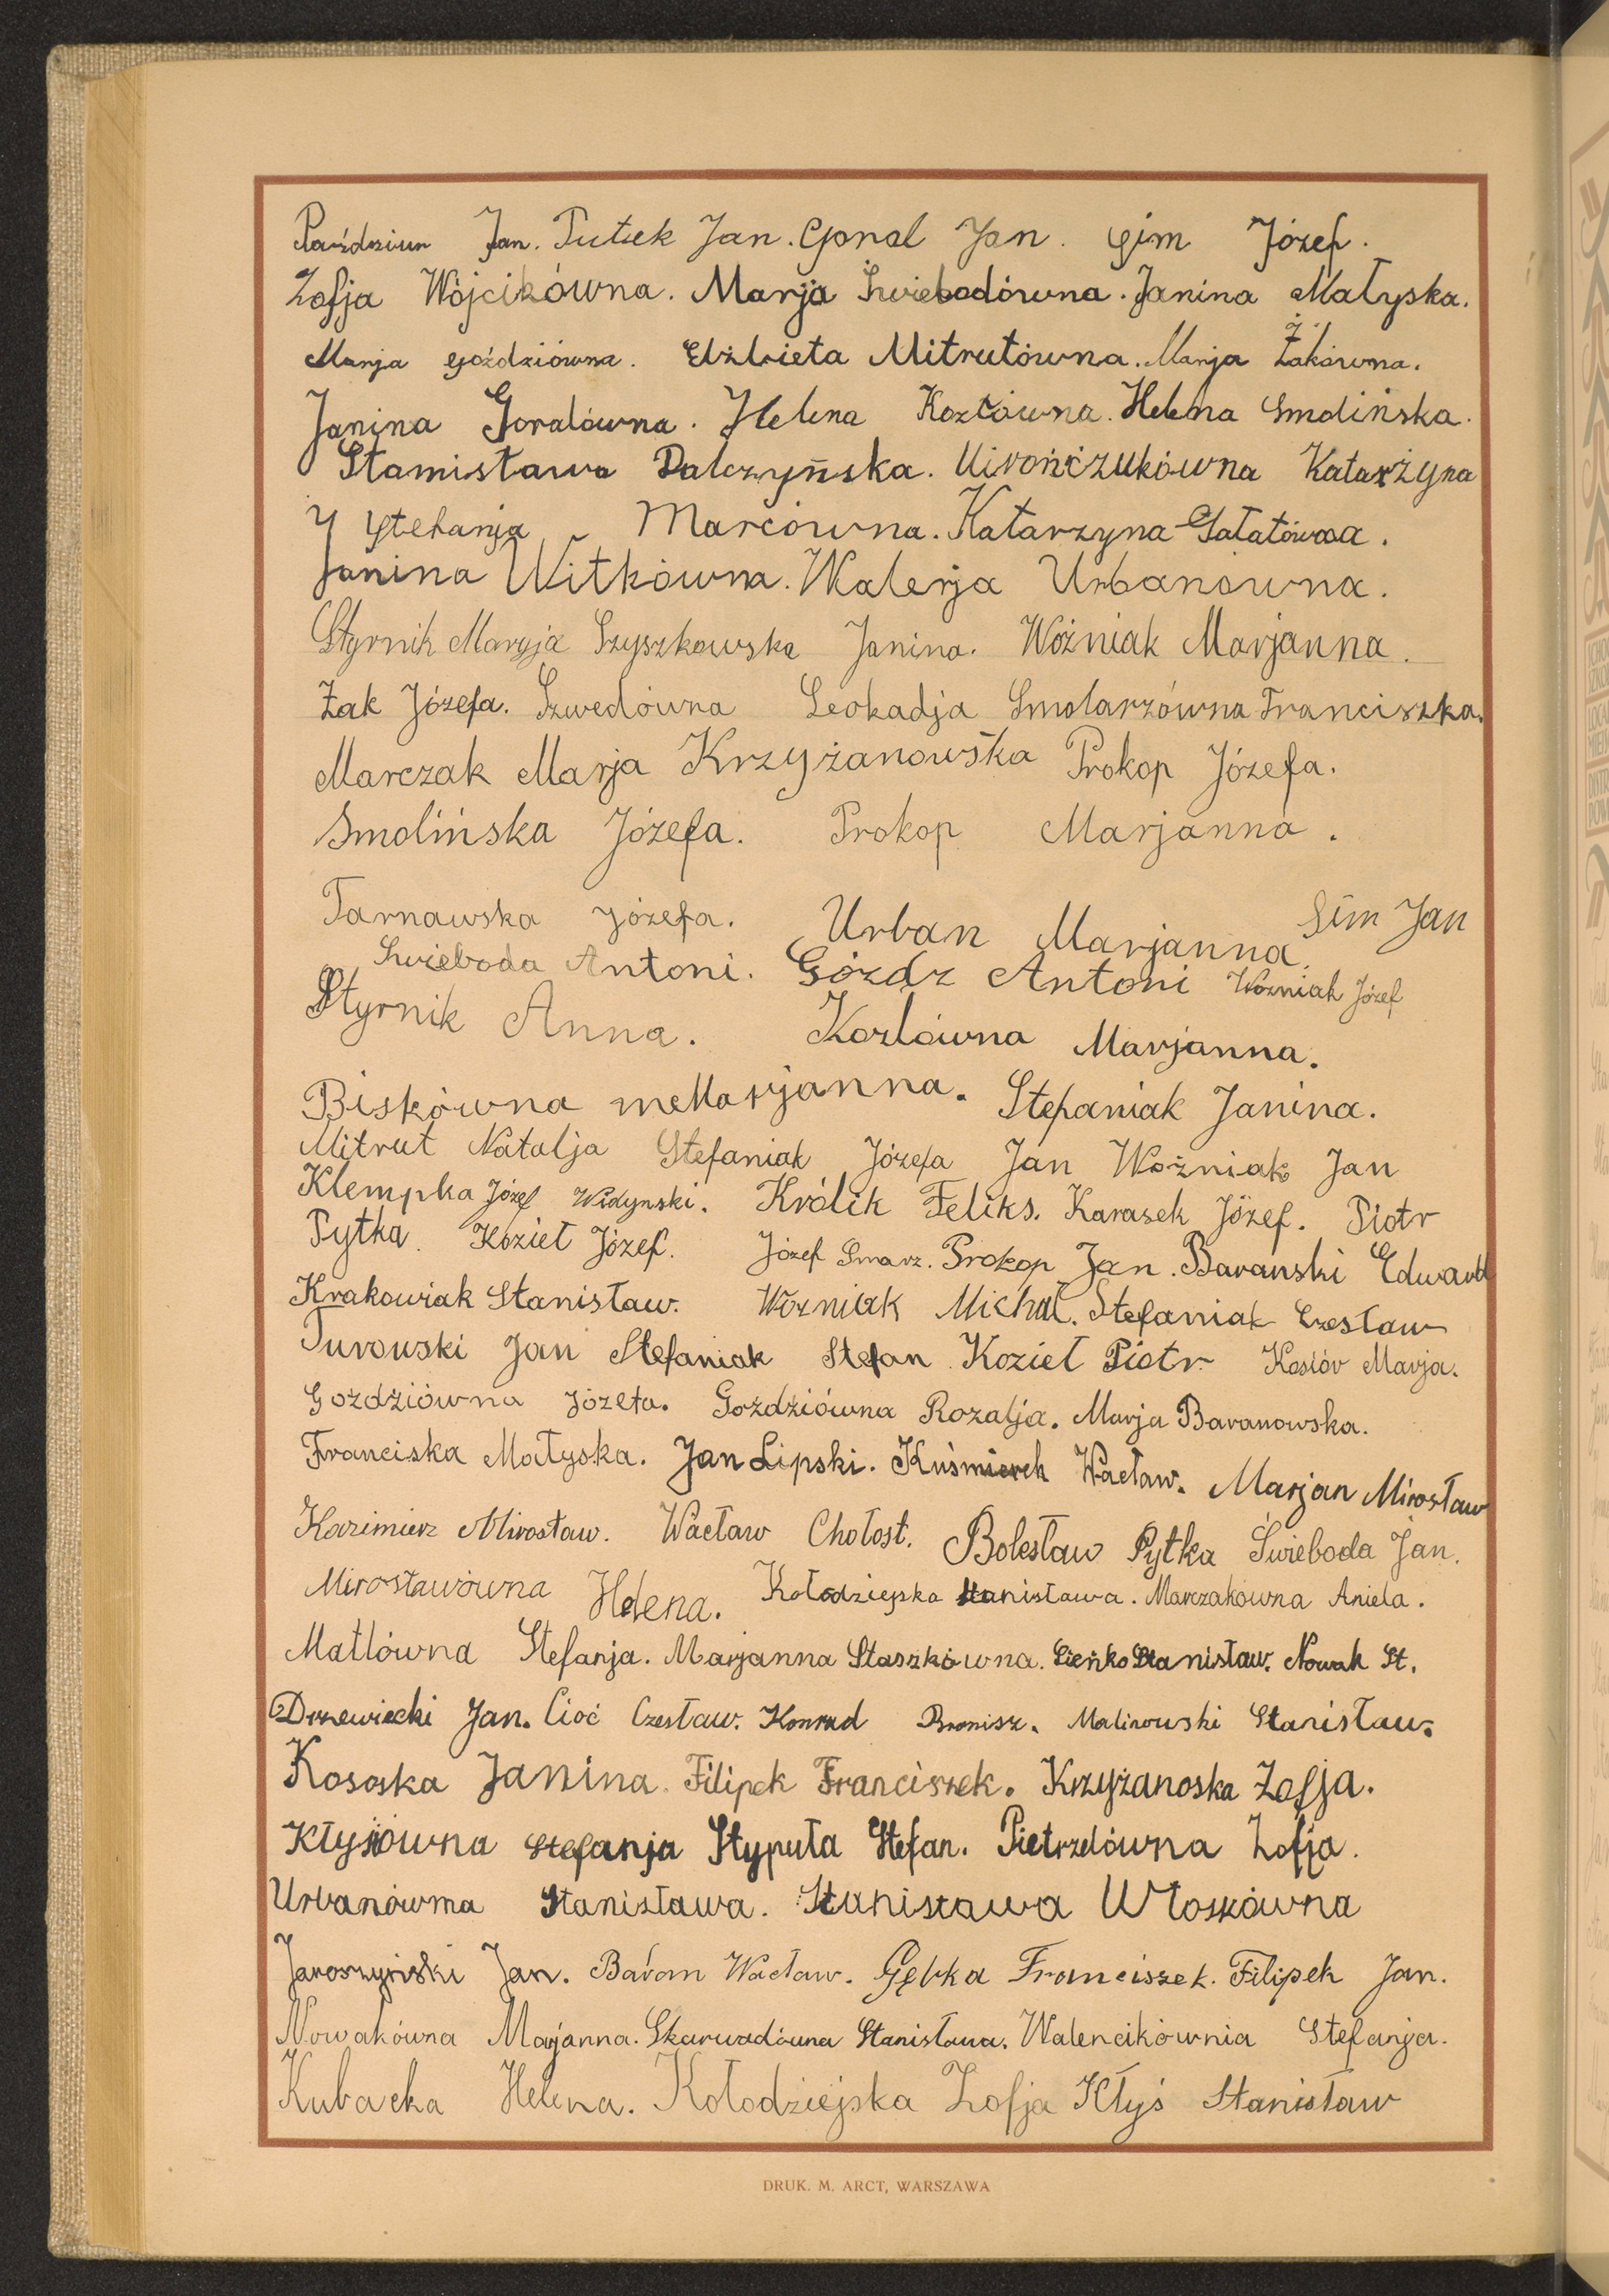 Paździur Jan. Putek Jan. Gonal Jan. Gim Józef.
Zofja Wójcikówna. Marja Świebodówna. Janina Małyska.
Marja Goździówna. Elżbieta Mitrutówna. Marja Żakówna.
Janina Goralówna. Helena Kozłówna. Helena Smolińska.
Stamisława Dalczyńska. Katarzyna
Stefanja Marcówna. Katarzyna Sałatówna.
Janina Witkówna. Walerja Urbanówna.
Styrnik Maryja Szyszkowska Janina. Woźniak Marjanna.
Żak Józefa. Szwedówna Leokadja Smolarzówna Franciszka.
Marczak Marja Krzyżanowska Prokop Józefa.
Smolińska Józefa. Prokop Marjanna.
Tarnawska Józefa. Urban Marjanna. Sim Jan
Świeboda Antoni. Góździ Antoni Woźniak Józef
Styrnik Anna. Kozłówna Marjanna.
Biskówna Marjanna. Stefaniak Janina.
Mitrut Natalja Stefaniak Józefa Jan Woźniak Jan
Klempka Józef Widynski. Królik Feliks. Karasek Józef. Piotr
Pytka. Kozieł Józef. Józef Smarz. Prokop Jan. Baranski Edward
Krakowiak Stanisław. Woźniak Michał. Stefaniak Czesław
Turowski Jan Stefaniak Stefan Kozieł Piotr Kosiór Marja.
Goździówna Józefa. Goździówna Rozalja. Marja Baranowska.
Franciska Małyska. Jan Lipski. Kuśmierek Wacław. Marjan Mirosław
Kazimierz Mirosław. Wacław Chołost. Bolesław Pytka Świeboda Jan.
Mirosławówna Helena. Kołodziejska Stanisława. Marczakówna Aniela.
Matlówna Stefanja. Marjanna Staszkówna. Cieńko Stanisław. Nowak St.
Drzewiecki Jan. Cioć Czesław. Konrad Bronisz. Malinowski Stanisław.
Kososka Janina. Filipek Franciszek. Krzyżanoska Zofja.
Kłysówna Stefanja Stypuła Stefan. Pietrzelówna Zofja.
Urbanówma Stanisława. Stanisława Włoskówna
Jaroszyński Jan. Baran Wacław. Gębka Franciszek. Filipek Jan.
Nowakówna Marjanna. Skarwadówna Stanisława. Walencikównia Stefanja.
Kubacka Helena. Kołodziejska Zofja Kłyś Stanisław
DRUK. M. ARCT, WARSZAWA